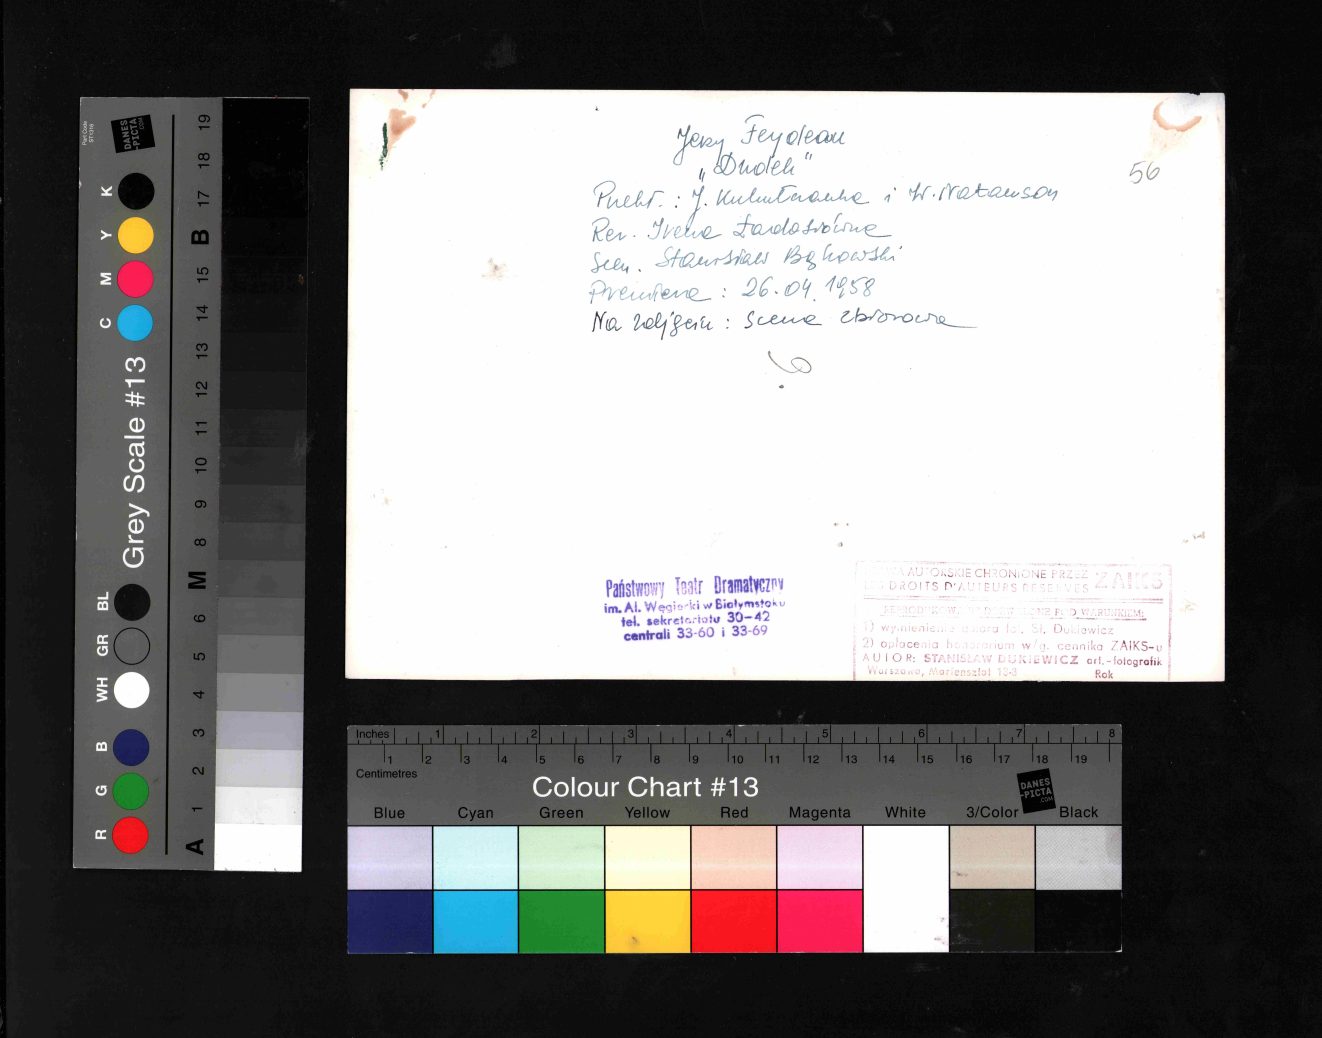 Jerzy Feydeau
„Dudek"
56
Przekł.: J. i W. Natanson
Reż. Irena
Scen. Stanisław Bąkowski
Premiera: 26.04.1958
Na zdjęciu: scena zbiorowa
Państwowy Teatr Dramatyczny
im. Al. Węgierki w Białymstoku
tel. sekretariatu 30-42
centrali 33-60 i 33-69
AUTORSKIE CHRONIONE PRZEZ ZAIKS
LES DROITS D'AUTEURS RESERVES
POD WARUNKIEM:
1) wymienienia autora fot. St. Dukiewicz
2) opłacenia honorarium w/g. cennika ZAiKS-u
AUTOR: STANISŁAW DUKIEWICZ art.-fotografik
Warszawa, Mariensztat 13-3 Rok
Part Code
ST1316
DANES
-PICTA
.COM
K Y M C
Grey Scale #13
BL GR WH B G R
19 18 17 B 15 14 13 12 11 10 9 8 M 6 5 4 3 2 1 A
Inches 1 2 3 4 5 6 7 8
1 2 3 4 5 6 7 8 9 10 11 12 13 14 15 16 17 18 19
Centimetres
Colour Chart #13
DANES
-PICTA
.COM
Blue Cyan Green Yellow Red Magenta White 3/Color Black